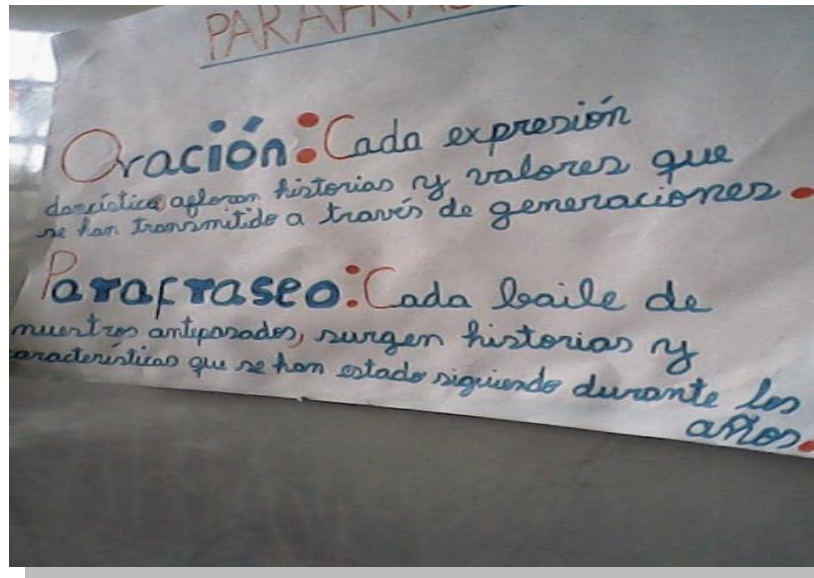 PARAFRAS
Oración: Cada expresión
dancística afloran historias y valores que
se han transmitido a través de generaciones.
Parafraseo: Cada baile de
nuestros antepasados, surgen historias y
aracterísticas que se han estado siguiendo durante los
años.